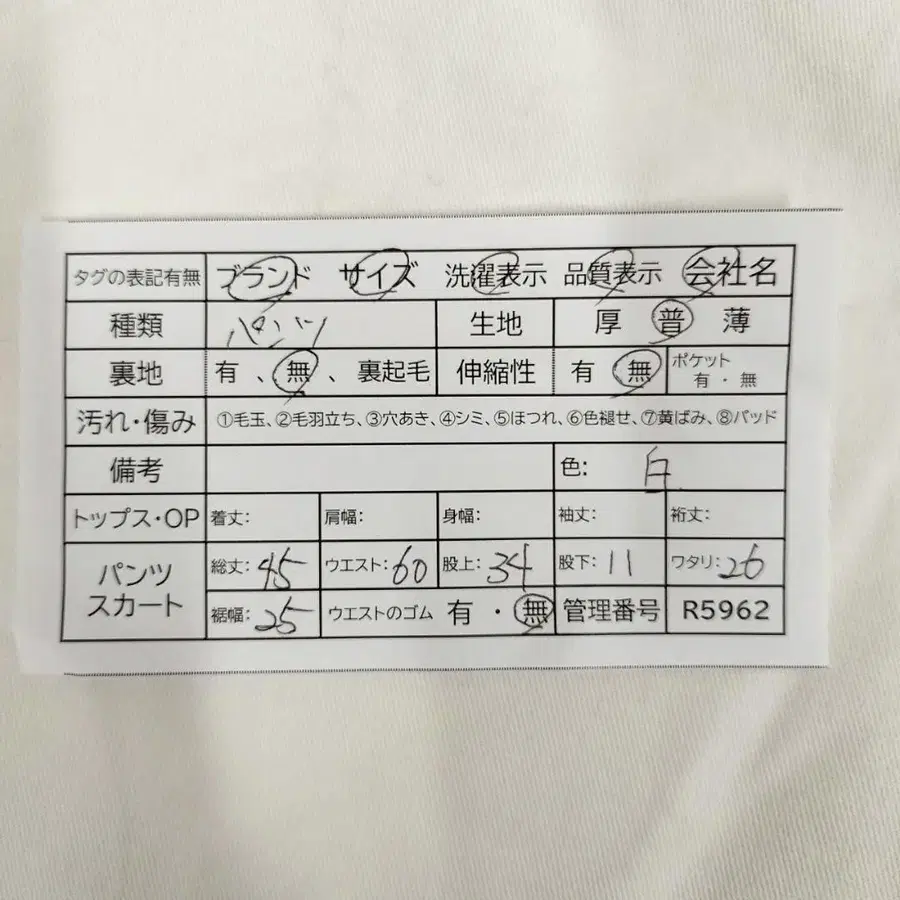 タグの表記有無 ブランド サイズ 洗濯表示 品質表示 会社名
種類 パンツ 生地 厚 普 薄
裏地 有 、無 、 裏起毛 伸縮性 有 無 ポケット 有・無
汚れ・傷み ①毛玉、②毛羽立ち、③穴あき、④シミ、⑤ほつれ、⑥色褪せ、⑦黄ばみ、⑧パッド
備考 色: 白
トップス・OP 着丈: 肩幅: 身幅: 袖丈: 裄丈:
パンツ スカート 総丈: 45 ウエスト: 60 股上: 34 股下: 11 ワタリ: 26
裾幅: 25 ウエストのゴム 有 ・ 無 管理番号 R5962